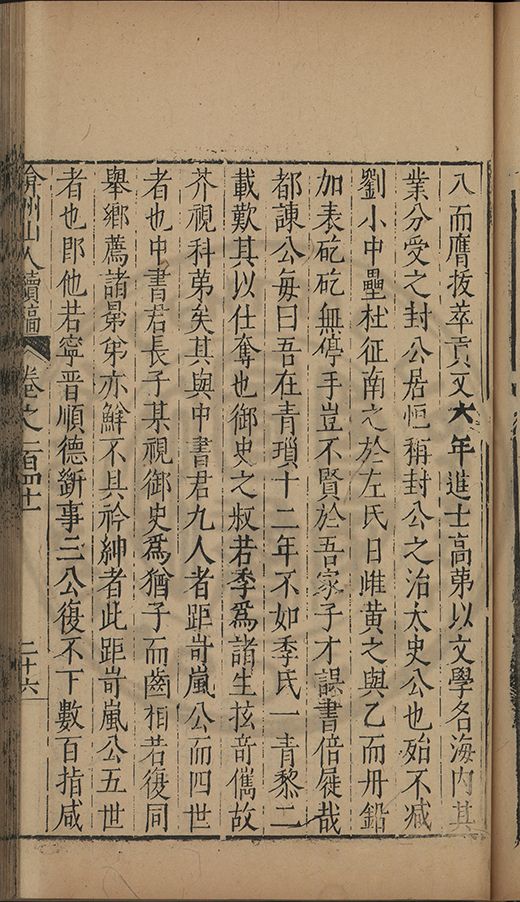 八而膺拔萃貢又六年進士高苐以文學名海內其
業分受之封公居恒稱封公之治太史公也殆不減
劉小中壘杜征南之於左氏日雌黃之與乙而丹鉛
加表矻矻無停手豈不賢於吾家子才誤書倍屣哉
都諫公每曰吾在青瑣十二年不如季氏一青黎二
載歎其以仕奪也御史之叔若季爲諸生拔竒儁故
芥視科苐矣其與中書君九人者距岢嵐公而四世
者也中書君長子某視御史爲猶子而齒相若後同
舉鄉薦諸苐弟亦鮮不具衿紳者此距岢嵐公五世
者也卽他若寧晉順德斷事三公復不下數百指咸
弇州山人續稿 卷之一百四十 二十六